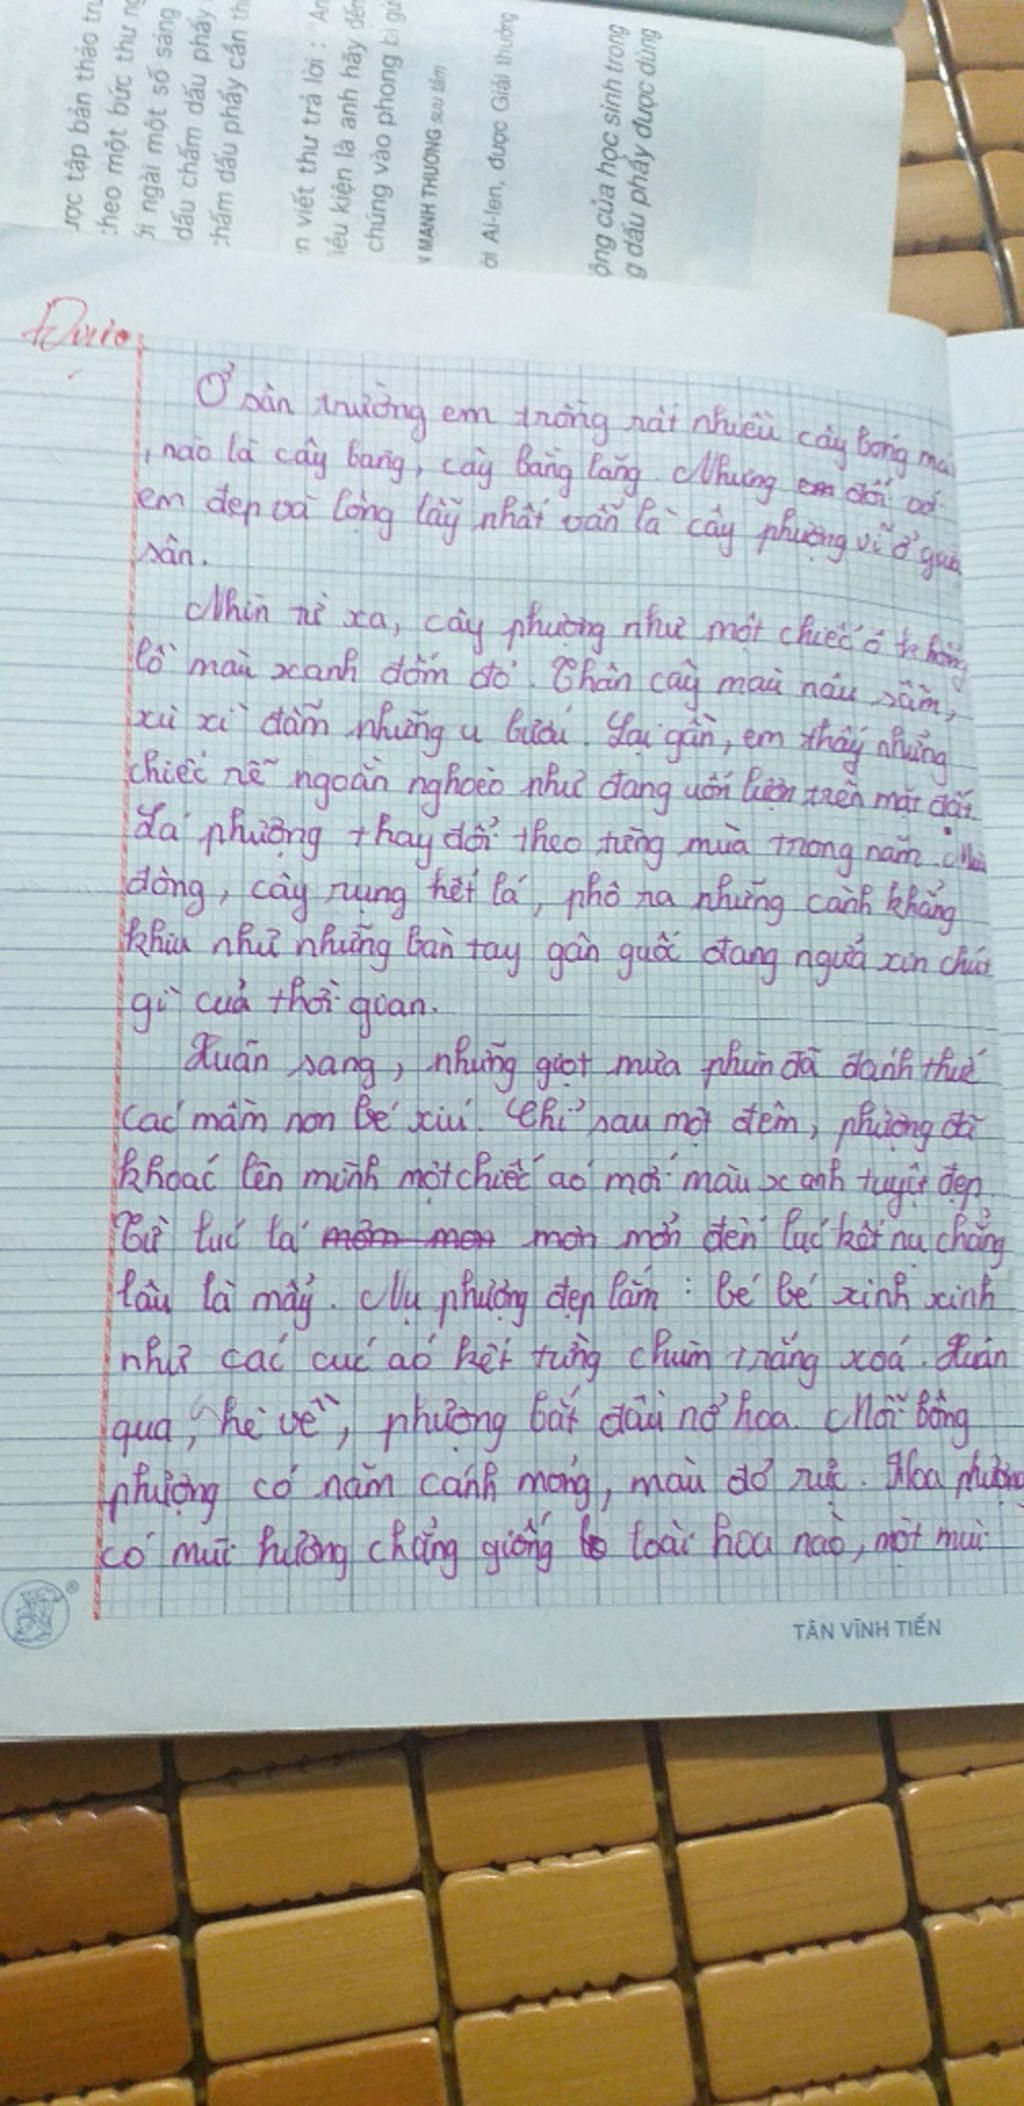 ược tập bản thảo
theo một bức thư
ngài một số sáng
dấu chấm dấu phẩy
chấm dấu phẩy cần
viết thư trả lời : "An
kiện là anh hãy đến
chúng vào phong bì
MẠNH THƯƠNG sưu tầm
Ai-len, được Giải thưởng
ộng của học sinh trong
g dấu phẩy được dùng
Ở sân trường em trồng rất nhiều cây bóng má
, nào là cây bàng, cây bằng lăng. Nhưng em đối với
em đẹp và lộng lẫy nhất vẫn là cây phượng vĩ ở
sân.
Nhìn từ xa, cây phượng như một chiếc ô khổng
lồ màu xanh đốm đỏ. Thân cây màu nâu sẫm,
xù xì đầm những u bướu. Lại gần, em thấy những
chiếc rễ ngoằn nghoèo như đang uốn lượn trên mặt đất.
Lá phượng thay đổi theo từng mùa trong năm. Mùa
đông, cây rụng hết lá, phô ra những cành khẳng
khiu như những bàn tay gân guốc đang ngửa xin chút
gì của thời gian.
Xuân sang, những giọt mưa phùn đã đánh thức
các mầm non bé xíu. Chỉ sau một đêm, phượng đã
khoác lên mình một chiếc áo mới màu xanh tuyệt đẹp.
Từ lúc lá mầm non mơn mởn đến lúc kết nụ chẳng
lâu là mấy. Nụ phượng đẹp lắm : bé bé xinh xinh
như các cúc áo kết từng chùm trắng xoá. Xuân
qua, "hè về", phượng bắt đầu nở hoa. Mỗi bông
phượng có năm cánh mỏng, màu đỏ rực. Hoa phượng
có mùi hương chẳng giống loài hoa nào, một mùi
TÂN VĨNH TIẾN